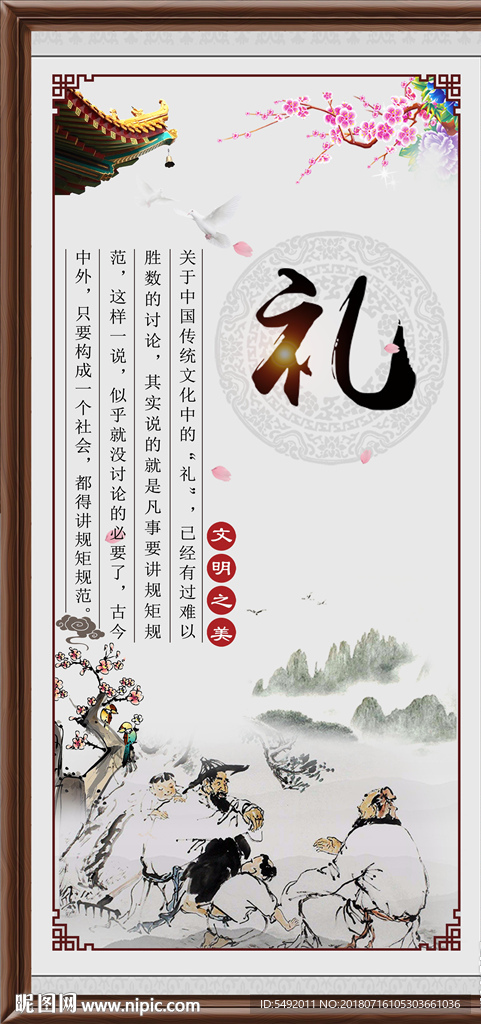 礼
文明之美
关于中国传统文化中的“礼”，已经有过难以
胜数的讨论，其实说的就是凡事要讲规矩规
范，这样一说，似乎就没讨论的必要了，古今
中外，只要构成一个社会，都得讲规矩规范。
昵图网 www.nipic.com
ID:5492011 NO:20180716105303661036